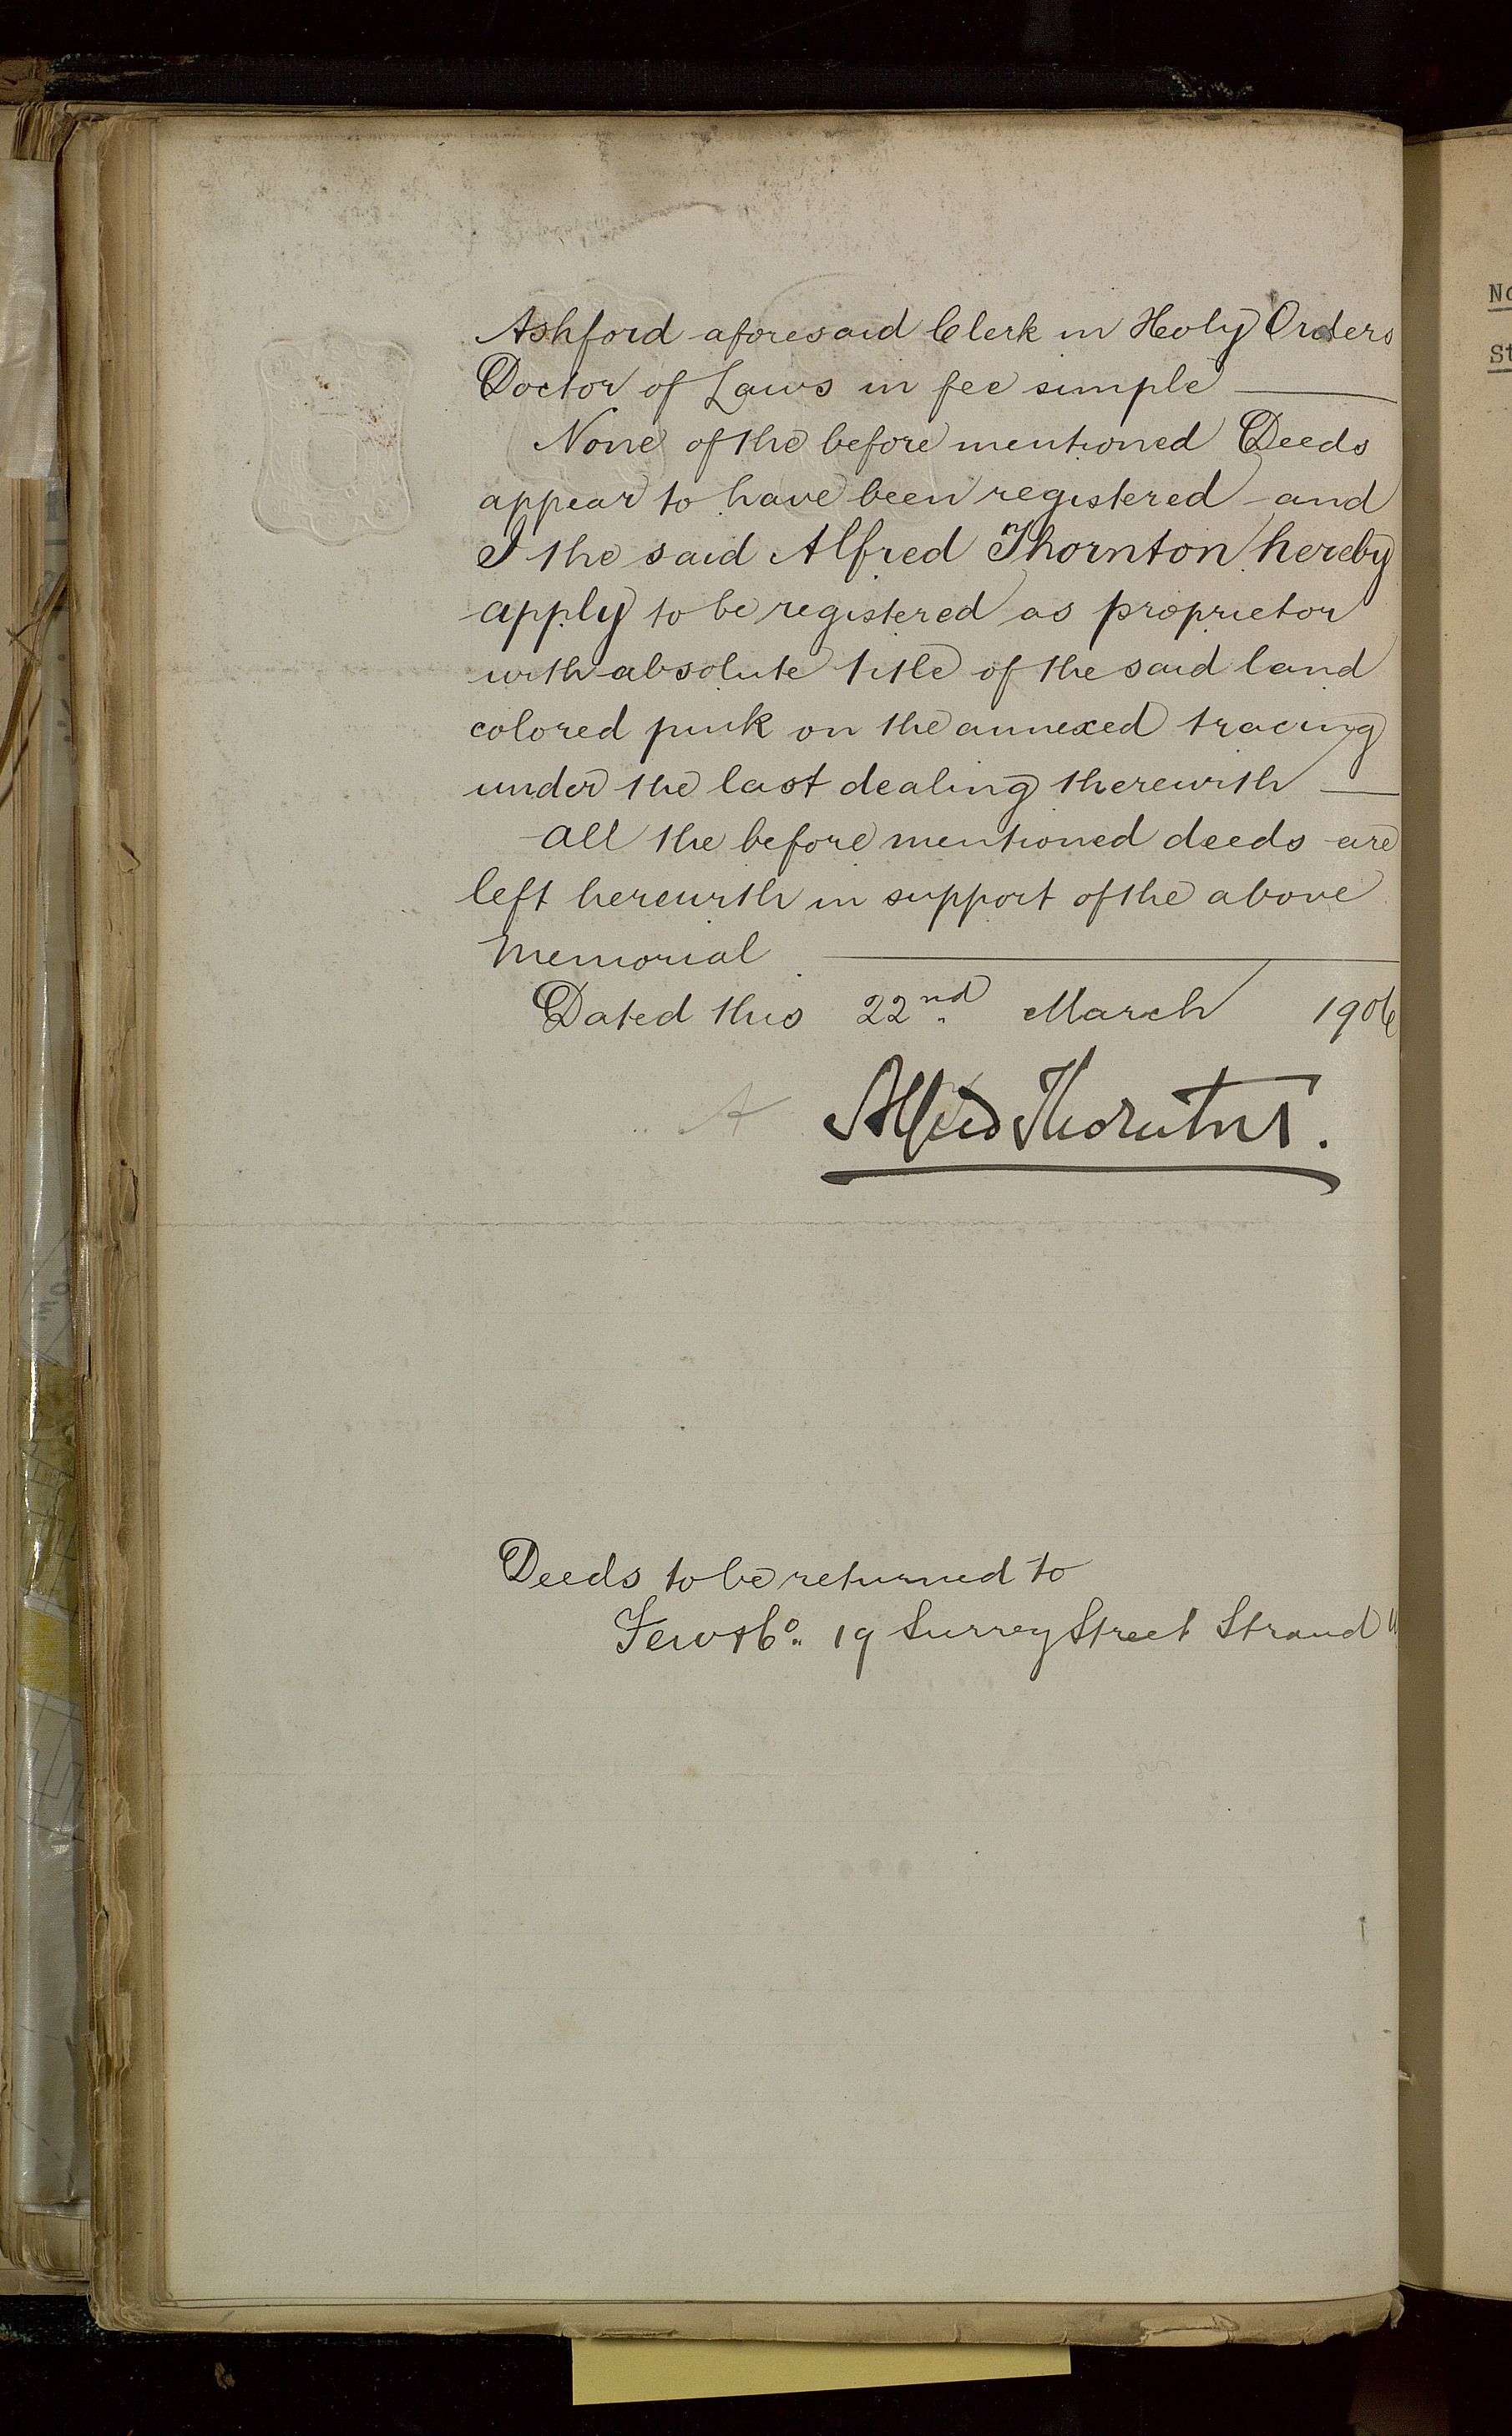 Ashford aforesaid Clerk in Holy Orders
Doctor of Laws in fee simple
None of the before mentioned Deeds
appear to have been registered and
I the said Alfred Thornton hereby
apply to be registered as proprietor
with absolute title of the said land
colored pink on the annexed tracing
under the last dealing therewith
All the before mentioned deeds are
left herewith in support of the above
Memorial
Dated this 22nd March 1906
A Alfred Thornton.
Deeds to be returned to
Few & Co. 19 Surrey Street Strand
No
St